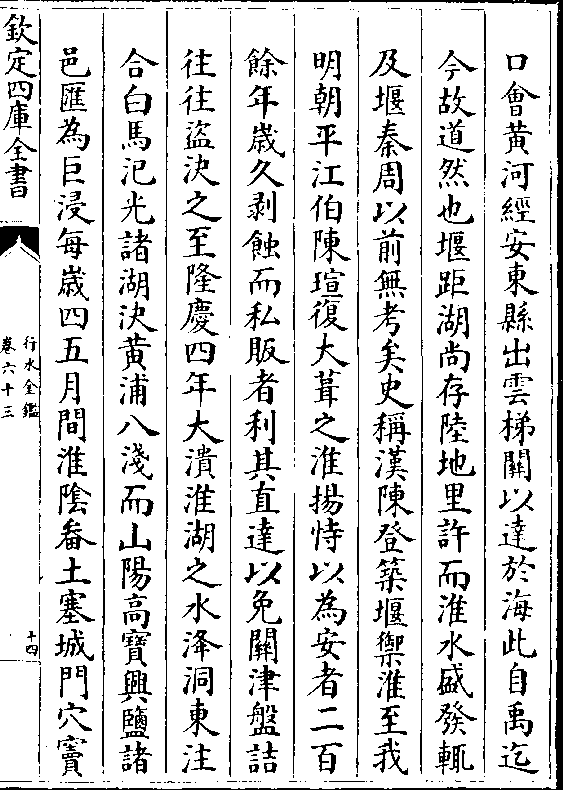 口會黄河經安東縣出雲梯關以達於海此自禹迄
今故道然也堰距湖尚存陸地里許而淮水盛發輒
及堰秦周以前無考矣史稱漢陳登築堰禦淮至我
明朝平江伯陳瑄復大葺之淮揚恃以為安者二百
餘年歲久剥蝕而私販者利其直達以免關津盤詰
往往盜決之至隆慶四年大潰淮湖之水洚洞東注
合白馬氾光諸湖決黄浦八淺而山陽高寶興鹽諸
邑匯為巨浸每歲四五月間淮陰畚土塞城門穴竇
欽定四庫全書
行水金鑑
卷六十三
十四